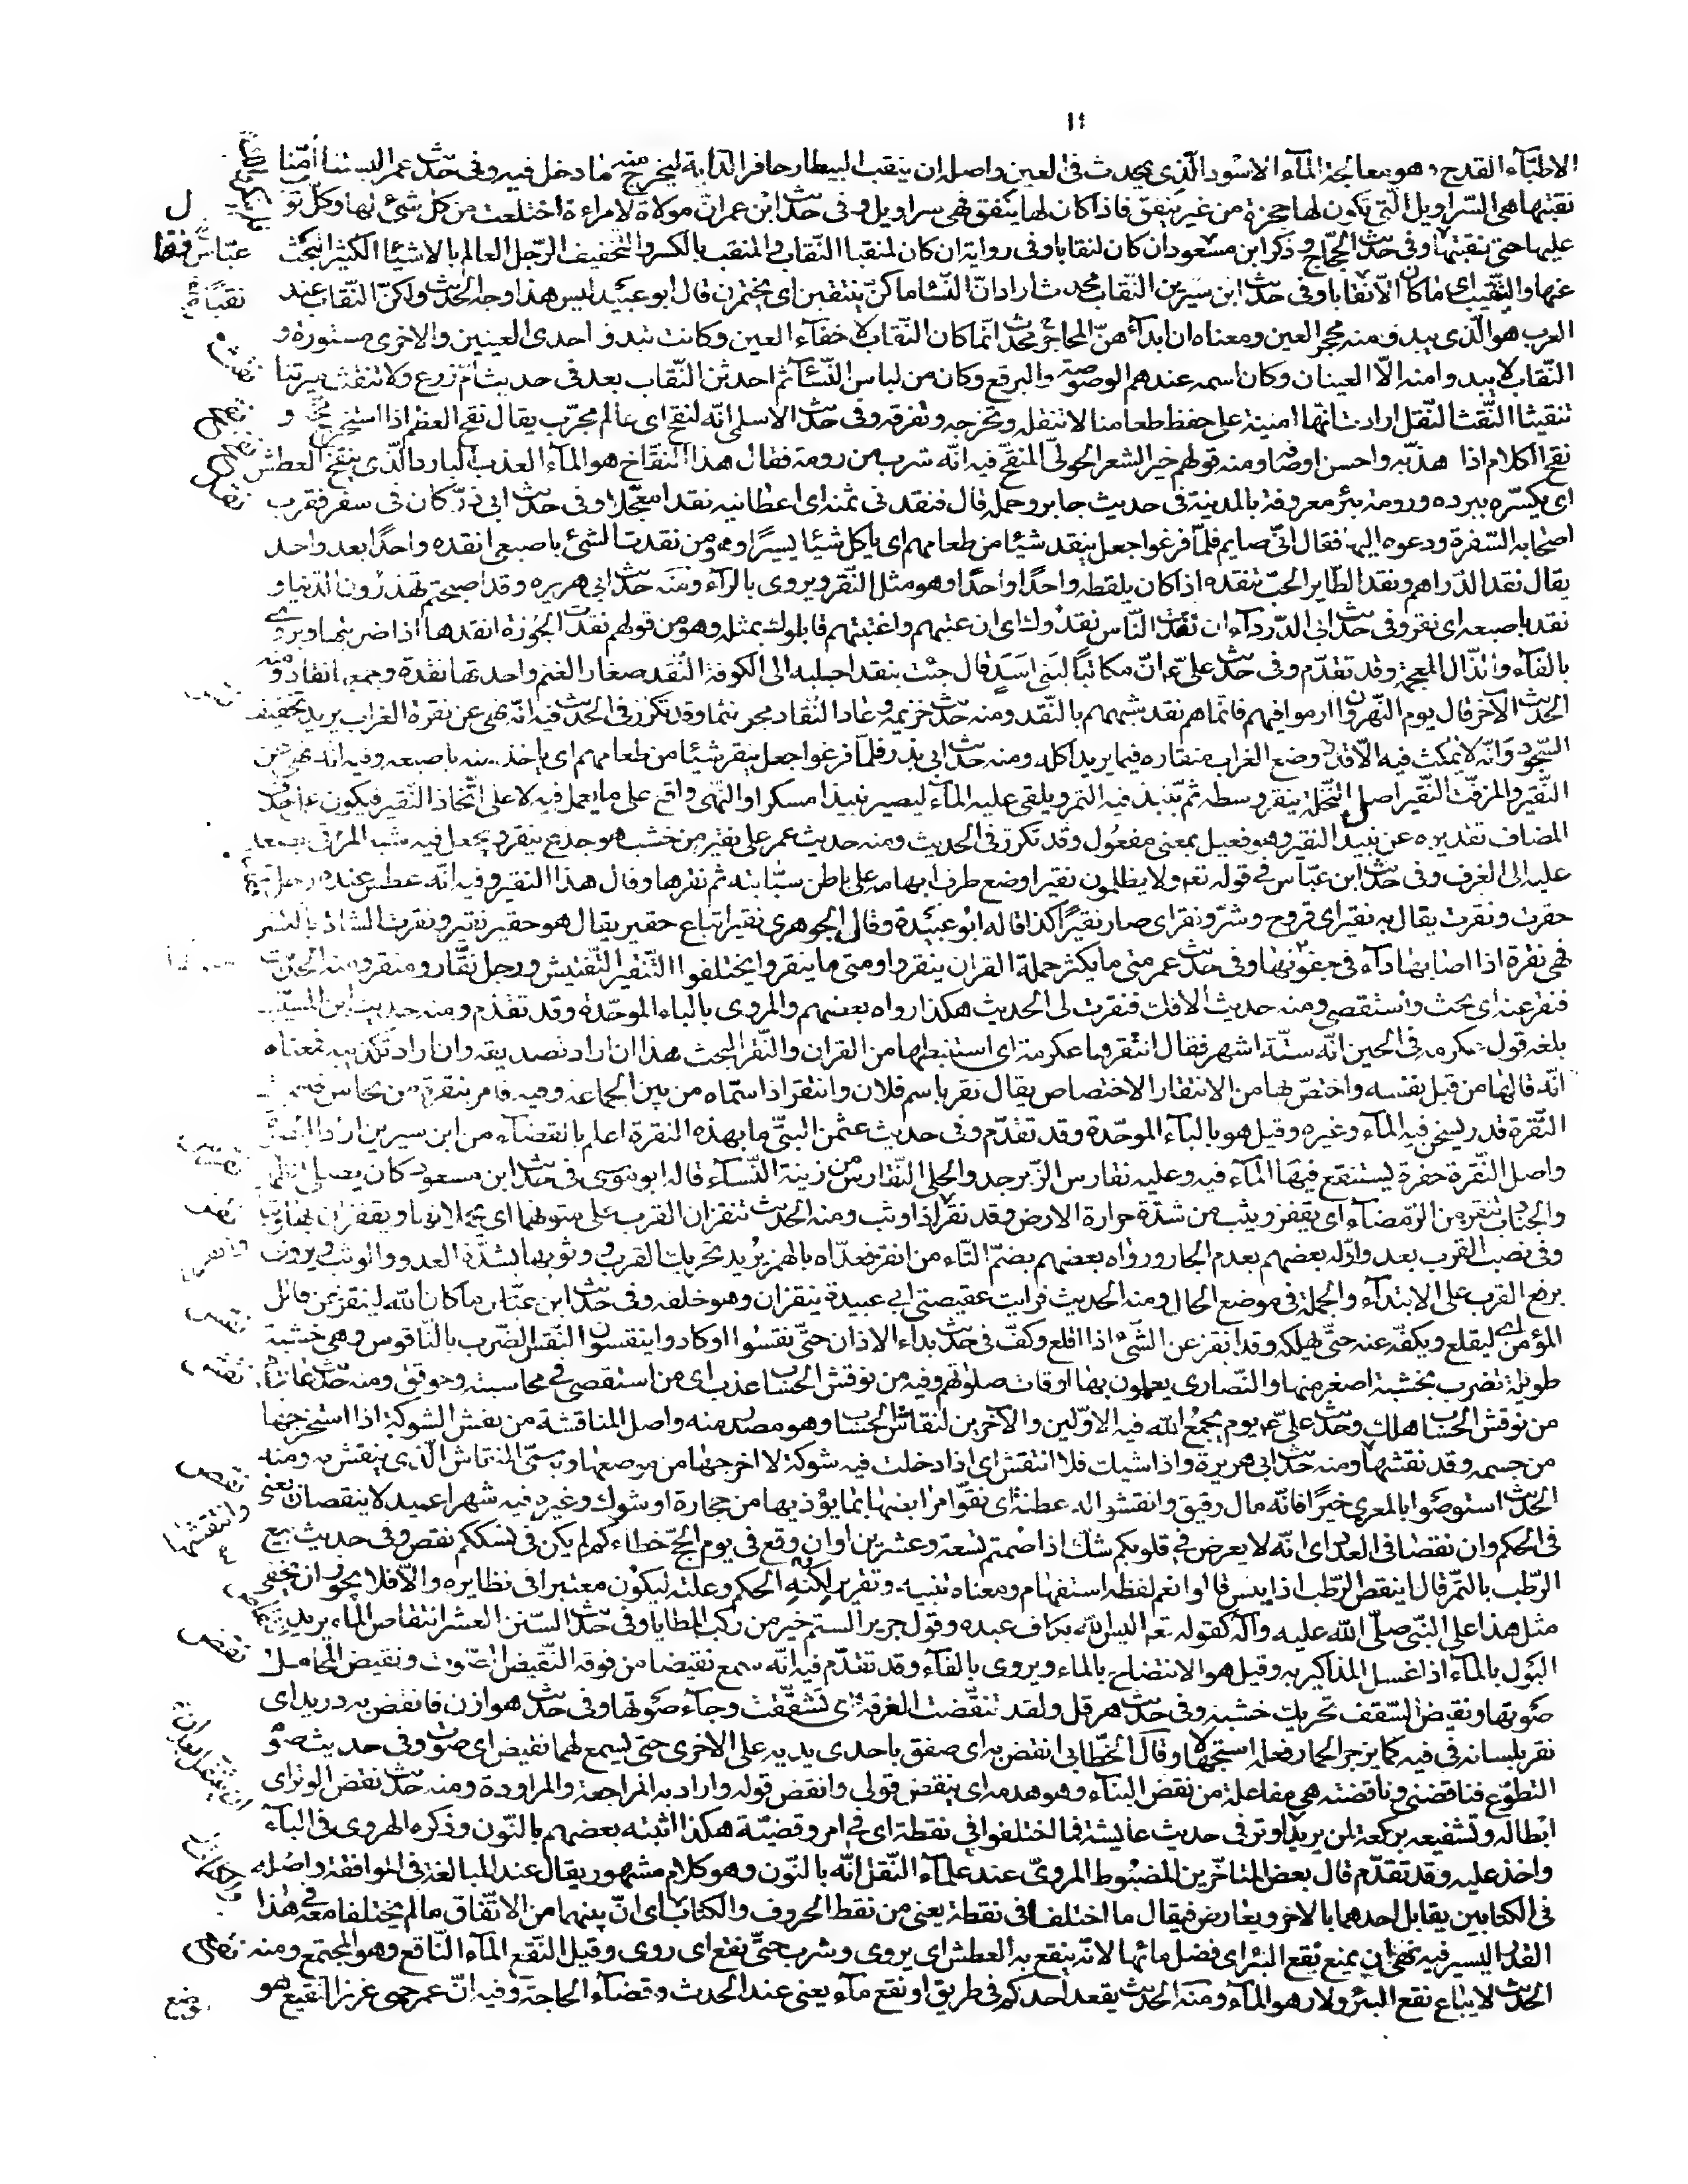 الاطبّاء القدح وهو معالجة المآء الاسود الّذى يحدث فى العين واصله ان ينقب البيطار حافر الدّابة ليخرج منه ما دخل فيه وفى حديث عمر البستنا امّنا
نقبتها هى السّراويل الّتى تكون لها حجزة من غير نيفق فاذا كان لها نيفق فهى سراويل وفى حديث ابن عمر انّ مولاة لامراءة اختلعت من كل شئ لها وكل ثوب
عليها حتى نقبتها وفى حديث الحجّاج وذكر ابن مسعود ان كان لنقابا وفى رواية ان كان لمنقبا النّقاب والمنقب بالكسر والتّخفيف الرّجل العالم بالاشيآء الكثير البحث
عنها والتنقيب اى ما كان الّا نقابا وفى حديث ابن سيرين النّقاب محدث اراد انّ النّسآء ما كنّ ينتقبن اى يختمرن قال ابو عبيد ليس هذا وجه الحديث ولكنّ النّقاب عند
العرب هو الّذى يبدو منه محجر العين ومعناه ان ابدآءهنّ المحاجر محدث انّما كان النّقاب لاخفآء العين وكانت تبدو احدى العينين والاخرى مستورة و
النّقاب لا يبدو منه الّا العينان وكان اسمه عندهم الوصوصة والبرقع وكان من لباس النّسآء ثم احدثن النّقاب بعد فى حديث امّ زرع ولا تنقث ميرتنا
تنقيثا النّقث النّقل ارادت انّها امينة على حفظ طعامنا لا تنقله وتخرجه وتفرقه وفى حديث الاسلمى انّه لنقح اى عالم مجرّب يقال نقح العظم اذا استخرج مخّه و
نقح الكلام اذا هذّبه واحسن اوصافه ومنه قولهم خير الشعر الحولىّ المنقّح فيه انّه شرب من رومة فقال هذا النّقاخ هو المآء العذب البارد الّذى ينقخ العطش
اى يكسّره ببرده ورومة بئر معروفة بالمدينة فى حديث جابر وجمله قال فنقدنى ثمنه اى اعطانيه نقدا معجّلا وفى حديث ابى ذرّ كان فى سفر فقرب
اصحابه السّفرة ودعوه اليها فقال انّى صايم فلمّا فرغوا جعل ينقد شيئا من طعامهم اى ياكل شيئا يسيرًا وهو من نقدت الشئ باصبعى انقده واحدًا بعد واحد
يقال نقد الدّراهم ونقد الطّاير الحبّ ينقده اذا كان يلقطه واحدًا واحدًا وهو مثل النّقر ويروى بالرّآء ومنه حديث ابى هريره وقد اصبحتم تهذرون الدّنيا و
نقد باصبعه اى نقر وفى حديث ابى الدّردآء ان نقدت النّاس نقدوك اى ان عبتهم واغتبتهم قابلوك بمثله وهو من قولهم نقدت الجوزة انقدها اذا ضربتها ويروى
بالفآء والذّال المعجمة وقد تقدّم وفى حديث علىّ ع انّ مكاتبًا لبنى اسد قال جئت بنقد اجلبه الى الكوفة النّقد صغار الغنم واحدتها نقدة وجمعها نقاد ومنه
الحديث الآخر قال يوم النّهروان ارموا فيهم فانّما هم نقد شبّههم بالنّقد ومنه حديث خزيمة وعاد النّقاد مجرنثما وقد تكرّر فى الحديث فيه انّه نهى عن نقرة الغراب يريد تخفيف
السّجود وانّه لا يمكث فيه الّا قدر وضع الغراب منقاره فيما يريد اكله ومنه حديث ابى ذر فلمّا فرغوا جعل ينقر شيئا من طعامهم اى ياخذ منه باصبعه وفيه انّه نهى عن
النّقير والمزفّت النّقير اصل النّخلة ينقر وسطه ثم ينبذ فيه التمر ويلقى عليه المآء ليصير نبيذا مسكرا والنّهى واقع على ما يعمل فيه لا على اتّخاذ النّقير فيكون على حذف
المضاف تقديره عن نبيذ النقير وهو فعيل بمعنى مفعول وقد تكرّر فى الحديث ومنه حديث عمر على نقير من خشب هو جذع ينقر ويجعل فيه شبه المراقى يصعد
عليه الى الغرف وفى حديث ابن عبّاس فى قوله تعه ولا يظلمون نقيرا وضع طرف ابهامه على باطن سبّابته ثم نقرها وقال هذا النّقير وفيه انّه عطس عنده رجل فقال
حقرت ونقرت يقال به نقير اى قروح وشرّ ونقر اى صار نقيرًا كذا قاله ابو عبيدة وقال الجوهرى نقير اتباع حقير يقال هو حقير نقير ونقرت الشاة بالكسر
فهى نقرة اذا اصابها دآء فى جنوبها وفى حديث عمر متى ما يكثر حملة القرآن ينقروا ومتى ما ينقروا يختلفوا التّنقير التّفتيش ورجل نقّار ومنقر ومنه الحديث
فنقر عنه اى بحث واستقصى ومنه حديث الافك فنقرت لى الحديث هكذا رواه بعضهم والمروى بالباء الموحّدة وقد تقدّم ومنه حديث ابن المسيّب
بلغه قول عكرمة فى الحين انّه ستّة اشهر فقال انتقرها عكرمة اى استنبطها من القرآن والنّقر البحث هذا ان اراد تصديقه وان اراد تكذيبه فمعناه
انّه قالها من قبل نفسه واختصّ بها من الانتقار الاختصاص يقال نقر باسم فلان وانتقر اذا سمّاه من بين الجماعة وفيه فامر بنقرة من نحاس
النّقرة قدر يسخن فيه المآء وغيره وقيل هو بالبآء الموحّدة وقد تقدّم وفى حديث عثمن البتّى ما بهذه النقرة اعلم بالقضآء من ابن سيرين اراد البصرة
واصل النّقرة حفرة يستنقع فيها المآء فيه وعليه نقارس الزّبرجد والحلى النّقارس من زينة النّسآء قاله ابو موسى فى حديث ابن مسعود كان يصلى الظهر
والجنادب تنقز من الرّمضآء اى تقفز وتثب من شدّة حرارة الارض وقد نقز اذا وثب ومنه الحديث تنقزان القرب على متونهما اى تحملانها وتقفزان بها وثبا
وفى نصب القرب بعد واوّله بعضهم بعدم الجار ورواه بعضهم بضمّ التّاء من انقز فعدّاه بالهمز يريد تحريك القرب ووثوبها بشدّة العدو والوثب ويروى
برفع القرب على الابتدآء والجملة فى موضع الحال ومنه الحديث فرايت عقيصتى ابى عبيدة ينقزان وهو خلفه وفى حديث ابن عبّاس ما كان الله لينقز عن قاتل
المؤمن اى ليقلع ويكفّ عنه حتى يهلكه وقد انقز عن الشّئ اذا اقلع وكفّ فى حديث بداء الاذان حتّى نقسوا او كادوا ينقسون النّقس الضّرب بالنّاقوس وهى خشبة
طويلة تضرب بخشبة اصغر منها والنّصارى يعلمون بها اوقات صلوتهم وفيه من نوقش الحساب عذب اى من استقصى فى محاسبته وحوقق ومنه حديث عايشة
من نوقش الحساب هلك وحديث علىّ ع يوم يجمع الله فيه الاوّلين والآخرين لنقاش الحساب وهو مصدر منه واصل المناقشة من نقش الشوكة اذا استخرجها
من جسمه وقد نقشها ومنه حديث ابى هريرة واذا شيك فلا انتقش اى اذا دخلت فيه شوكة لا اخرجها من موضعها وبه سمّى المنقاش الّذى ينقش به ومنه
الحديث استوصوا بالمعزى خيرًا فانّه مال رقيق وانقشوا له عطنه اى نقّوا مرابضها ممّا يؤذيها من حجارة او شوك وغيره فيه شهرا عيد لا ينقصان يعنى
فى الحكم وان نقصا فى العدد اى انّه لا يعرض فى قلوبكم شكّ اذا صمتم تسعة وعشرين او ان وقع فى يوم الحجّ خطاء كم لم يكن فى نسككم نقص وفى حديث بيع
الرّطب بالتّمر قال اينقص الرّطب اذا يبس قالوا نعم لفظه استفهام ومعناه تنبيه وتقرير لكنه الحكم وعلته ليكون معتبرا فى نظايره والّا فلا يجوز ان يخفى
مثل هذا على النّبى صلّى الله عليه وآله كقوله تعه اليس الله بكاف عبده وقول جرير الستم خير من ركب المطايا وفى حديث السّنن العشر انتقاص المآء يريد
البول بالمآء اذا غسل المذاكير به وقيل هو الانتضاح بالماء ويروى بالفآء وقد تقدّم فيه انّه سمع نقيضا من فوقه النّقيض الصّوت ونقيض المحامل
صوتها ونقيض السّقف تحريك خشبه وفى حديث هرقل ولقد تنقّضت الغرفة اى تشقّقت وجآء صوتها وفى حديث هوازن فانقض به دريد اى
نقر بلسانه فى فيه كما يزجر الحمار فعله استجهالا وقال الخطّابى انقض به اى صفق باحدى يديه على الاخرى حتى يسمع لهما نقيض اى صوت وفى حديث صوم
التطوّع فناقضنى وناقضته هى مفاعلة من نقض البنآء وهو هدمه اى ينقض قولى وانقض قوله واراد به المراجعة والمراودة ومنه حديث نقض الوتر اى
ابطاله وتشفيعه بركعة لمن يريد وتر فى حديث عايشة فما اختلفوا فى نقطة اى فى امر وقضيّة هكذا اثبته بعضهم بالنّون وذكره الهروى فى البآء
واخذ عليه وقد تقدّم قال بعض المتاخّرين المضبوط المروىّ عند علمآء النّقل انّه بالنّون وهو كلام مشهور يقال عند المبالغة فى الموافقة واصله
فى الكتابين يقابل احدهما بالاخر ويعارض فيقال ما اختلفا فى نقطة يعنى من نقط الحروف والكتاب اى انّ بينهما من الاتّفاق ما لم يختلفا معه فى هذا
القدر اليسير فيه نهى ان يمنع نقع البئر اى فضل مائها لانّه ينقع به العطش اى يروى وشرب حتّى نقع اى روى وقيل النّقع المآء النّاقع وهو المجتمع ومنه
الحديث لا يباع نقع البئر ولا رهو المآء ومنه الحديث يقعد احدكم فى طريق او نقع مآء يعنى عند الحدث وقضآء الحاجة وفيه انّ عمر حمى غرز النّقيع هو